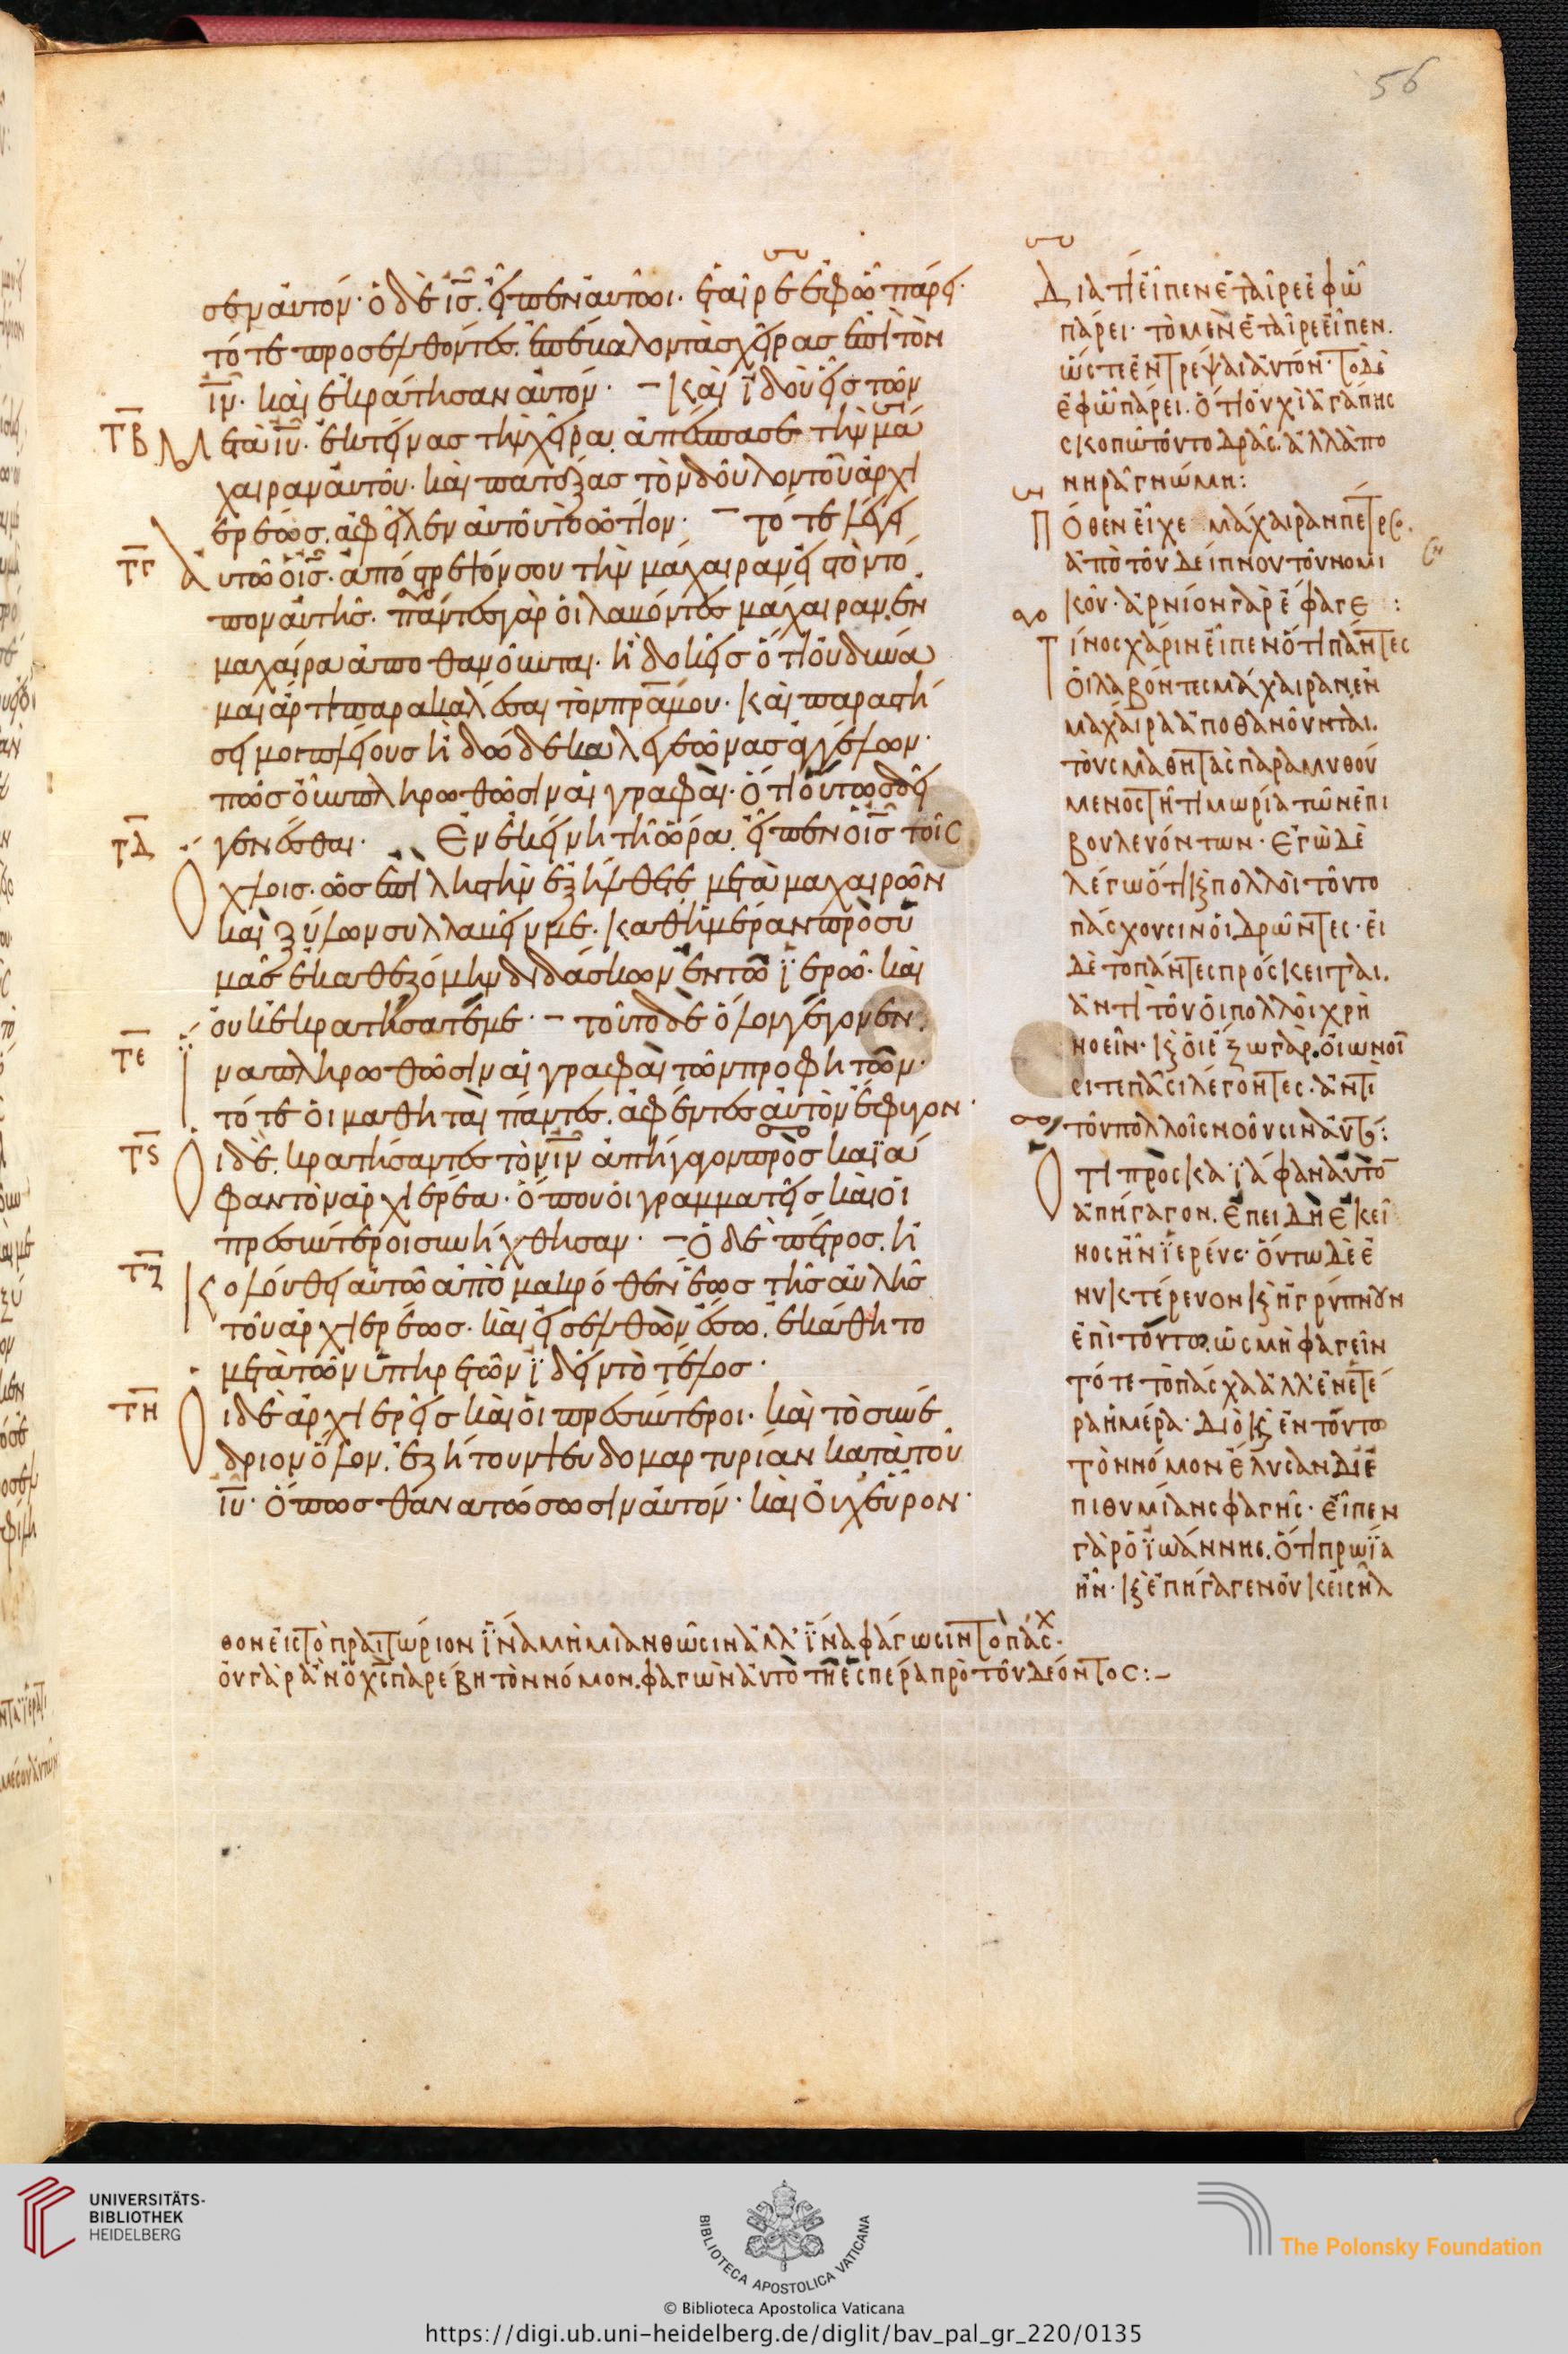 56
σεν αὐτόν· ὁ δὲ ι̅σ̅. εἶπεν αὐτῶι. ἑταῖρε ἐφ ὧ πάρει·
τότε προσελθόντες. ἐπέβαλον τὰς χεῖρας ἐπὶ τὸν
ι̅ν̅· καὶ ἐκράτησαν αὐτόν· – Καὶ ἰδοὺ εἷς τῶν
τ̅β̅ Μετὰ ι̅υ̅. ἐκτείνας τὴν χεῖρα. ἀπέσπασε τὴν μά
χαιραν αὐτοῦ· καὶ πατάξας τὸν δοῦλον τοῦ ἀρχι
ερέως. ἀφεῖλεν αὐτοῦ τὸ ὠτίον· – τότε λέγει
τ̅γ̅ Αὐτῶ ὁ ι̅σ̅. ἀπόστρεψόν σου τὴν μάχαιραν εἰς τὸν τό
πον αὐτῆς. πάντες γὰρ οἱ λαβόντες μάχαιραν. ἐν
μαχαίρα ἀποθανοῦνται. ἢ δοκεῖς ὅτι οὐ δύνα
μαι ἄρτι παρακαλέσαι τὸν π̅ρ̅α̅ μου· Καὶ παραστή
σει μοι πλείους ἢ δώδεκα λεγεῶνας ἀγγέλων·
πῶς οὖν πληρωθῶσιν αἱ γραφαί· ὅτι οὕτως δεῖ
τ̅δ̅ γενέσθαι· Ἐν ἐκείνη τῆ ὥρα. εἶπεν ὁ ι̅σ̅ τοῖς
Οχλοις. ὡς ἐπὶ ληστὴν ἐξήλθετε μετὰ μαχαιρῶν
καὶ ξύλων συλλαβεῖν με. Καθ ἡμέραν πρὸς ὑ
μᾶς ἐκαθεζόμην διδάσκων ἐν τῶ ἱερῶ. καὶ
οὐκ ἐκρατήσατέ με· – τοῦτο δὲ ὅλον γέγονεν.
τ̅ε̅ Ινα πληρωθῶσιν αἱ γραφαὶ τῶν προφητῶν·
τότε οἱ μαθηταὶ πάντες. ἀφέντες αὐτὸν ἔφυγον·
τ̅ϛ̅ Οιδὲ. κρατήσαντες τὸν ι̅ν̅ ἀπήγαγον πρὸς καϊά
φαν τὸν ἀρχιερέα· ὅπου οἱ γραμματεῖς καὶ οἱ
πρεσβύτεροι συνήχθησαν· – Ὁ δὲ πέτρος. ἠ
τ̅ζ̅ Κολούθει αὐτῶ ἀπὸ μακρόθεν ἕως τῆς αὐλῆς
τοῦ ἀρχιερέως. καὶ εἰσελθὼν ἔσω. ἐκάθητο
μετὰ τῶν ὑπηρετῶν ἰδεῖν τὸ τέλος·
τ̅η̅ Οιδὲ ἀρχιερεῖς καὶ οἱ πρεσβύτεροι. καὶ τὸ συνέ
δριον ὅλον. ἐζήτουν ψευδομαρτυρίαν κατὰ τοῦ
ι̅υ̅· ὅπως θανατώσωσιν αὐτόν· καὶ οὐχ εὗρον·
Διατί εἶπεν ἑταῖρε ἐφ ὧ
πάρει· τὸ μὲν ἑταῖρε εἶπεν.
ὥστε ἐντρέψαι αὐτόν· τὸ δὲ
ἐφ ὧ πάρει. ὅτι οὐχὶ ἀγάπης
σκοπῶ τοῦτο δρᾶς. ἀλλὰ πο
νηρᾶ γνώμη:
Πόθεν εἶχε μάχαιραν πετρο.
ἀπὸ τοῦ δείπνου τοῦ νομι
κοῦ· ἀρνίον γὰρ ἔφαγε :
Τίνος χάριν εἶπεν ὅτι πάντες
οἱ λαβόντες μάχαιραν, ἐν
μαχαίρα ἀποθανοῦνται.
τοὺς μαθητὰς παραμυθού
μενος τῆ τιμωρία τῶν ἐπι
βουλευόντων· Ἐγὼ δὲ
λέγω ὅτι ϗ πολλοὶ τοῦτο
πάσχουσιν οἱ δρῶντες· εἰ
δὲ τὸ πάντες πρόσκειται.
ἀντὶ τοῦ οἱ πολλοὶ χρὴ
νοεῖν· ϗ οἱ ἔξω γὰρ. οἰωνοῖ
σί τε πᾶσι λέγοντες. ἀντὶ
τοῦ πολλοῖς νοοῦσιν αὐτό:
Οτι πρὸς καϊάφαν αὐτὸ̅
ἀπήγαγον. Ἐπειδὴ ἐκεῖ
νος ἦν ἱερεύς· οὕτω δὲ ἐ
νυκτέρευον ϗ ἠγρύπνουν
ἐπὶ τούτω. ὡς μὴ φαγεῖν
τότε τὸ πάσχα ἀλλ' ἐν ἑτέ
ρα ἡμέρα· διὸ ϗ ἐν τούτω
τὸν νόμον ἔλυσαν δι ἐ
πιθυμίαν σφαγῆς· εἶπεν
γὰρ ὁ ἰωάννης. ὅτι πρωΐα
ἦν· ϗ ἐπήγαγεν οὐκ εἰσῆλ
θον εἰς τὸ πραιτώριον ἵνα μὴ μιανθῶσιν ἀλλ' ἵνα φάγωσιν τὸ πάσχ·
οὐ γὰρ ἂν ὁ χ̅ς̅ παρέβη τὸν νόμον. φαγὼν αὐτὸ τῆ ἑσπέρα πρὸ τοῦ δέοντος:–
UNIVERSITÄTS-
BIBLIOTHEK
HEIDELBERG
BIBLIOTECA APOSTOLICA VATICANA
The Polonsky Foundation
© Biblioteca Apostolica Vaticana
https://digi.ub.uni-heidelberg.de/diglit/bav_pal_gr_220/0135